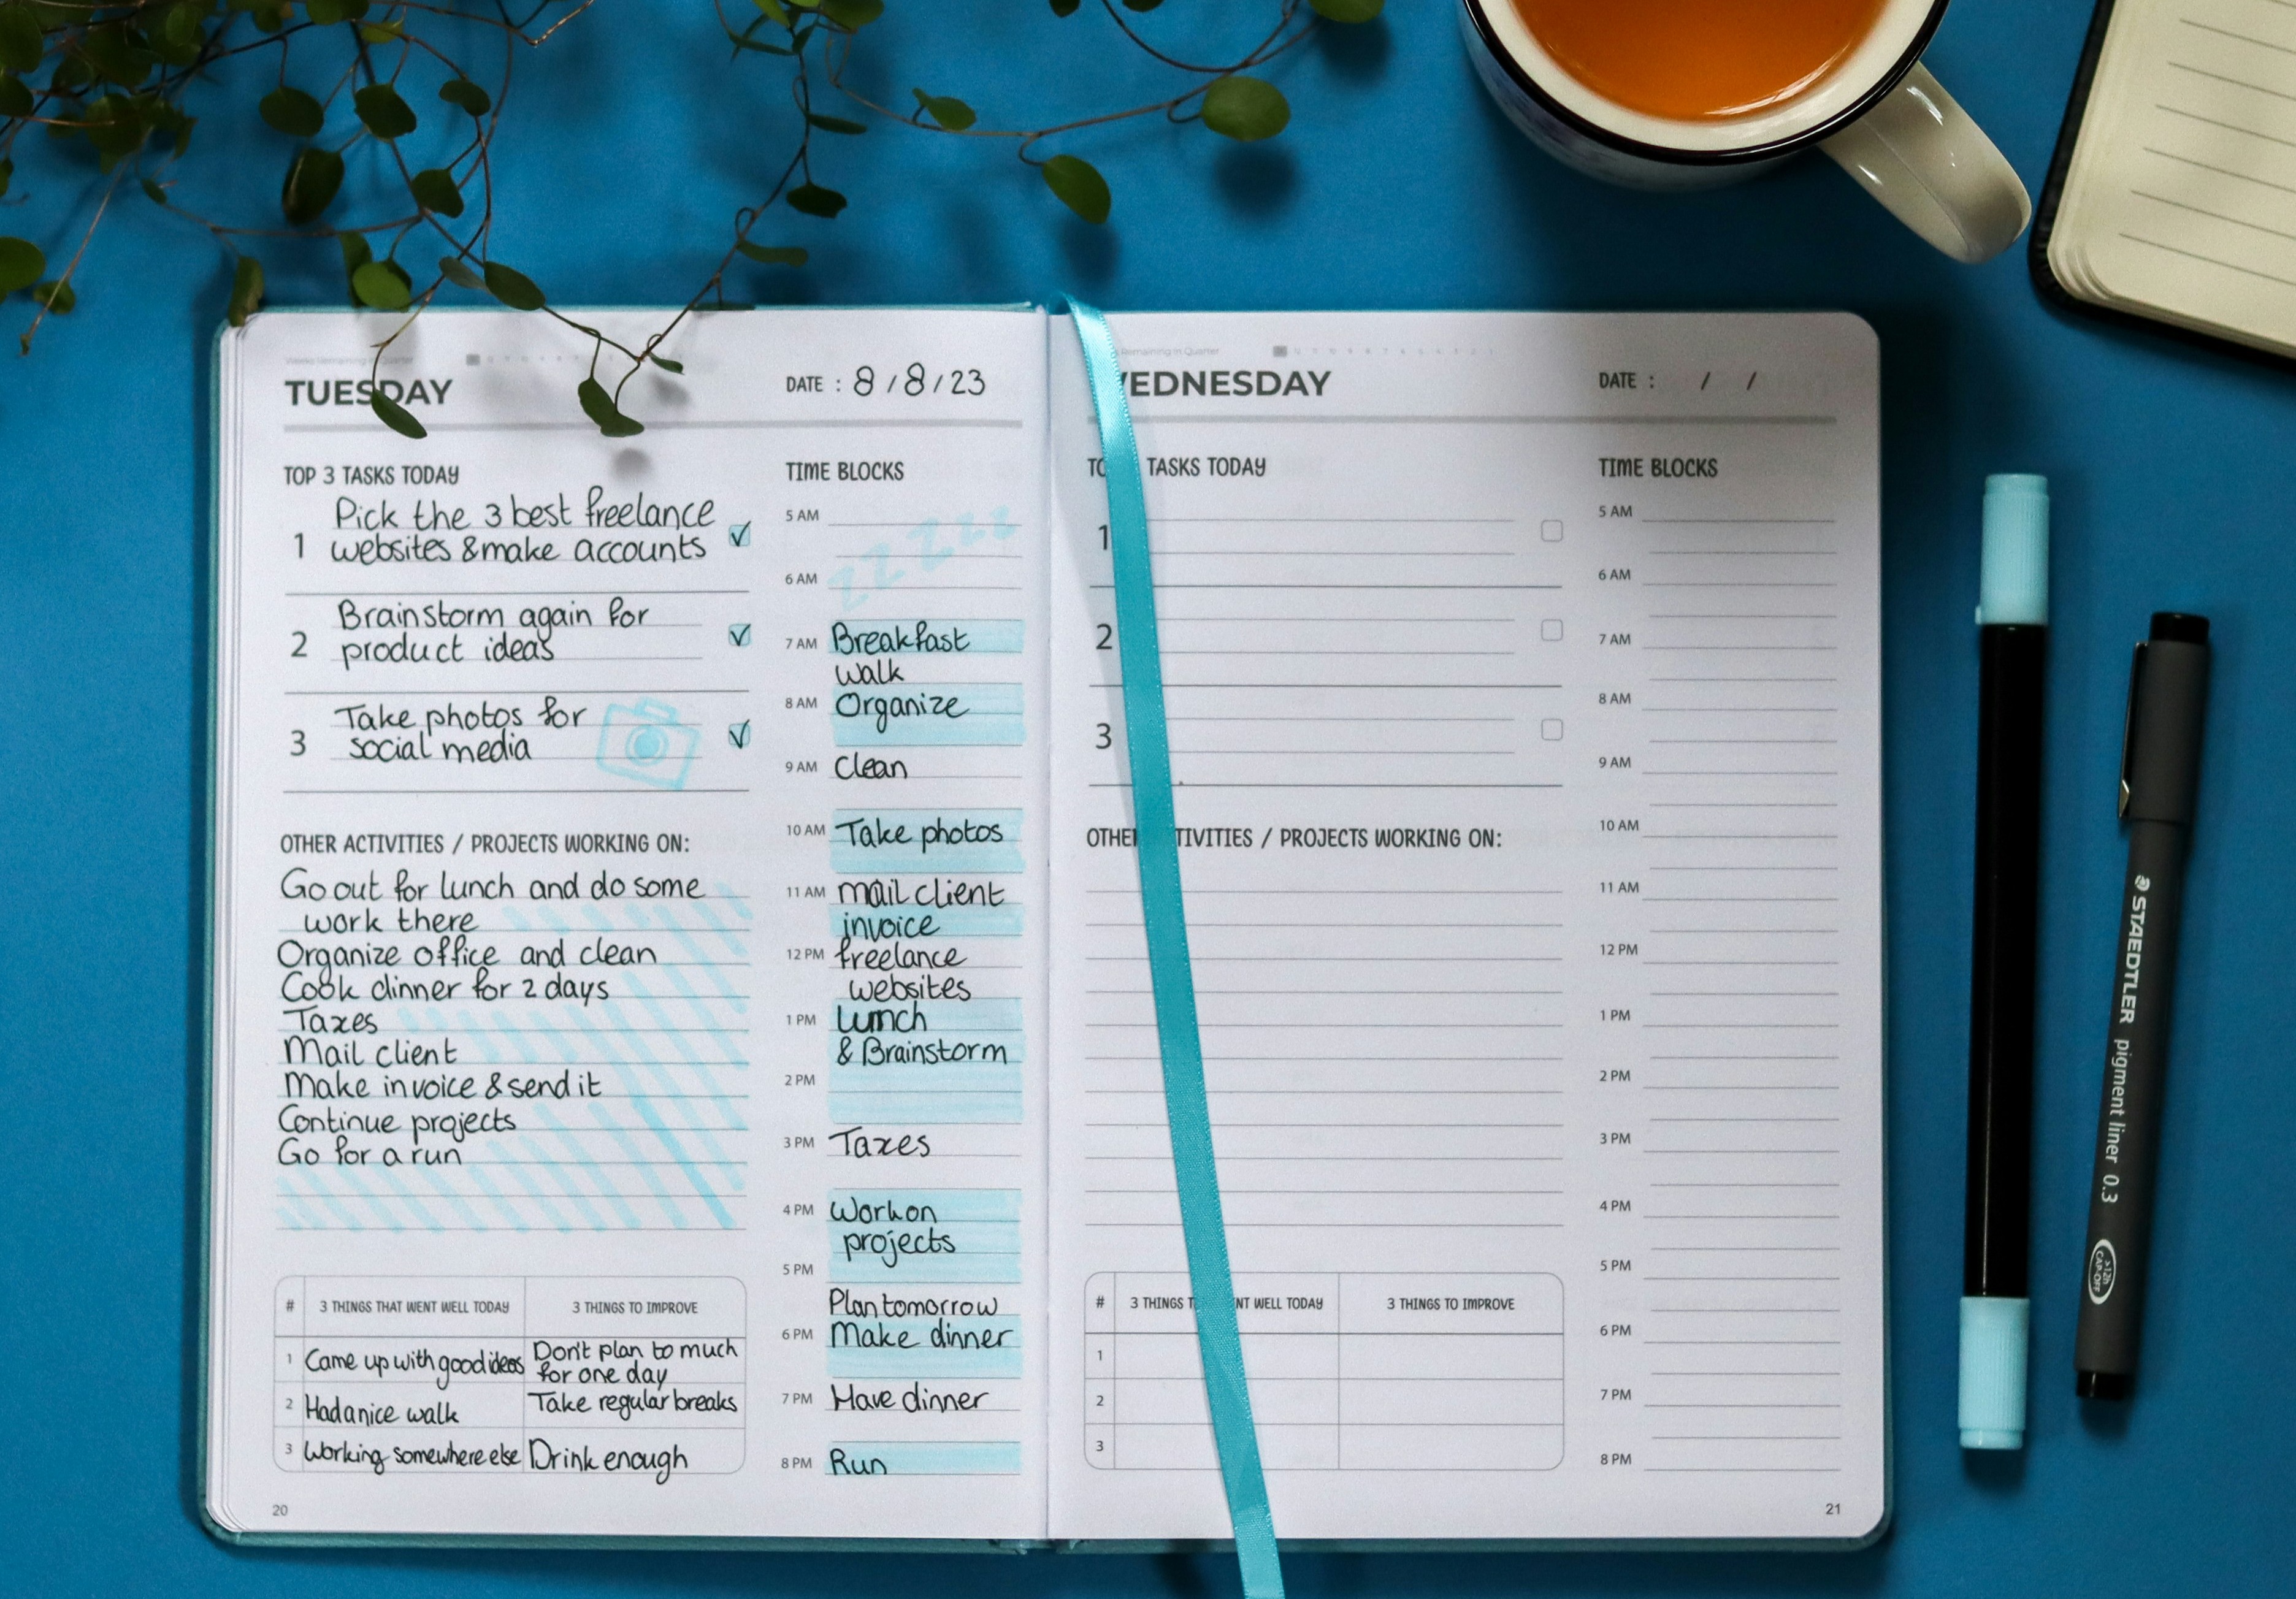 Weeks Remaining in Quarter
TUESDAY
DATE : 8 / 8 / 23
TOP 3 TASKS TODAY
1 Pick the 3 best freelance
websites & make accounts
2 Brainstorm again for
product ideas
3 Take photos for
social media
OTHER ACTIVITIES / PROJECTS WORKING ON:
Go out for lunch and do some
work there
Organize office and clean
Cook dinner for 2 days
Taxes
Mail client
Make invoice & send it
Continue projects
Go for a run
# 3 THINGS THAT WENT WELL TODAY 3 THINGS TO IMPROVE
1 Came up with good ideas Don't plan to much
for one day
2 Had a nice walk Take regular breaks
3 Working somewhere else Drink enough
20
TIME BLOCKS
5 AM
zzzzz
6 AM
7 AM Breakfast
walk
8 AM Organize
9 AM Clean
10 AM Take photos
11 AM mail client
invoice
12 PM freelance
websites
1 PM Lunch
& Brainstorm
2 PM
3 PM Taxes
4 PM Work on
projects
5 PM
Plan tomorrow
6 PM Make dinner
7 PM Have dinner
8 PM Run
Remaining in Quarter
EDNESDAY
DATE : / /
TO TASKS TODAY
1
2
3
OTHE TIVITIES / PROJECTS WORKING ON:
# 3 THINGS T NT WELL TODAY 3 THINGS TO IMPROVE
1
2
3
TIME BLOCKS
5 AM
6 AM
7 AM
8 AM
9 AM
10 AM
11 AM
12 PM
1 PM
2 PM
3 PM
4 PM
5 PM
6 PM
7 PM
8 PM
21
STAEDTLER pigment liner 0.3
>12h
CAP-OFF